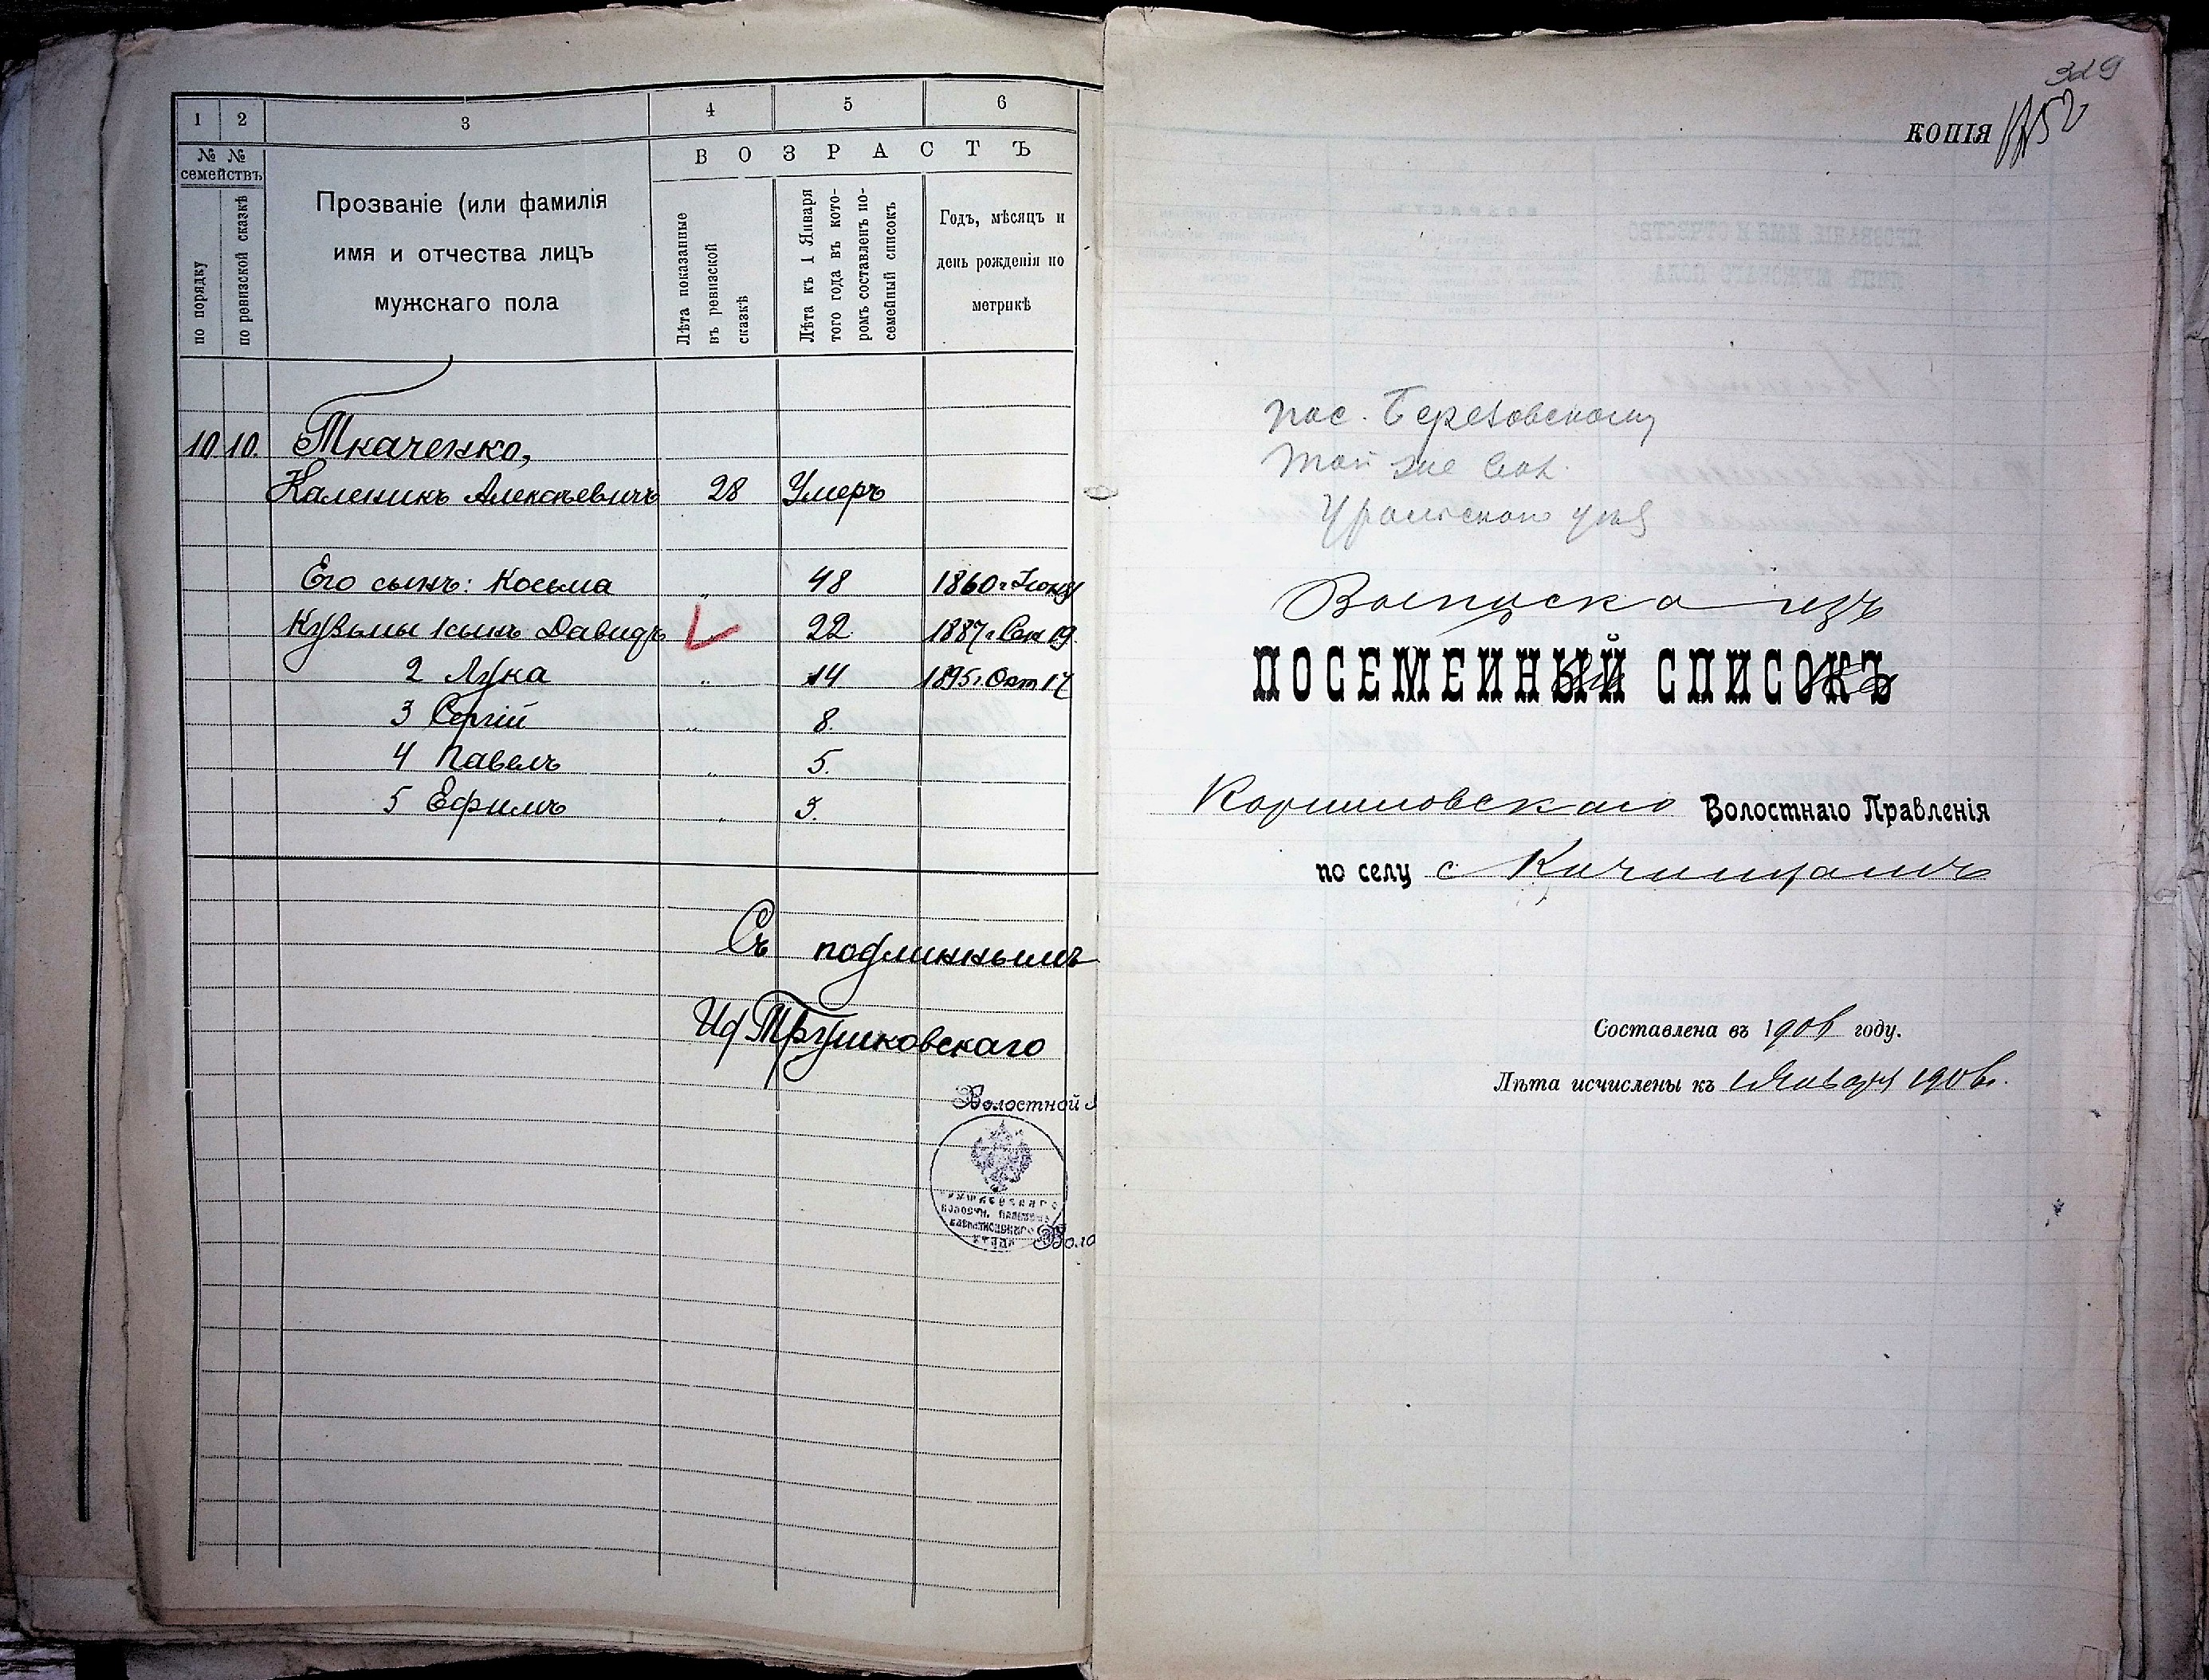 1 2 3 4 5 6
№ № семействъ
по порядку
по ревизской сказкѣ
Прозваніе (или фамилія
имя и отчества лицъ
мужскаго пола
В О З Р А С Т Ъ
Лѣта показанные
въ ревизской
сказкѣ
Лѣта къ 1 Января
того года въ кото-
ромъ составленъ по-
семейный список
Годъ, мѣсяцъ и
день рожденія по
метрикѣ
10 10. Ткаченко,
Каленикъ Алексѣевичъ 28 Умеръ
Его сынъ: Косьма „ 48 1860 г.
Кузьмы 1 сынъ Давидъ „ 22 1887 г. Сен 19.
2 Лука „ 14 1895 г. Окт 17
3 Сергій „ 8.
4 Павелъ „ 5.
5 Ефимъ „ 3.
Съ подлиннымъ
Трушковскаго
Волостной
Воло
КОПІЯ
пос. Березовскому
той же вол.
Уральского уѣз
Выписка изъ
ПОСЕМЕЙНЫЙ СПИСОКЪ
Волостнаго Правленія
по селу с
Составлена въ 1906 году.
Лѣта исчислены къ 1 Января 1906 г.